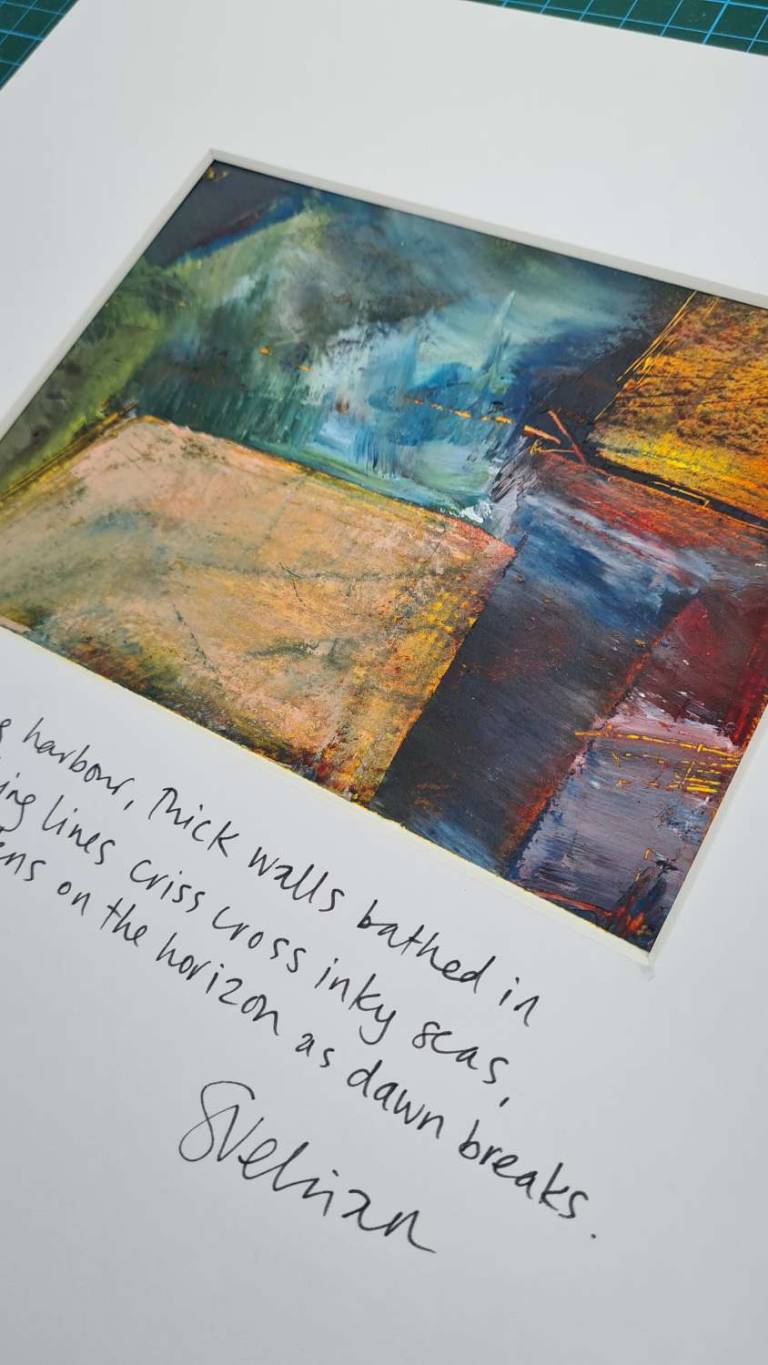 harbour, Thick walls bathed in
lines criss cross inky seas,
on the horizon as dawn breaks.
SVelhian